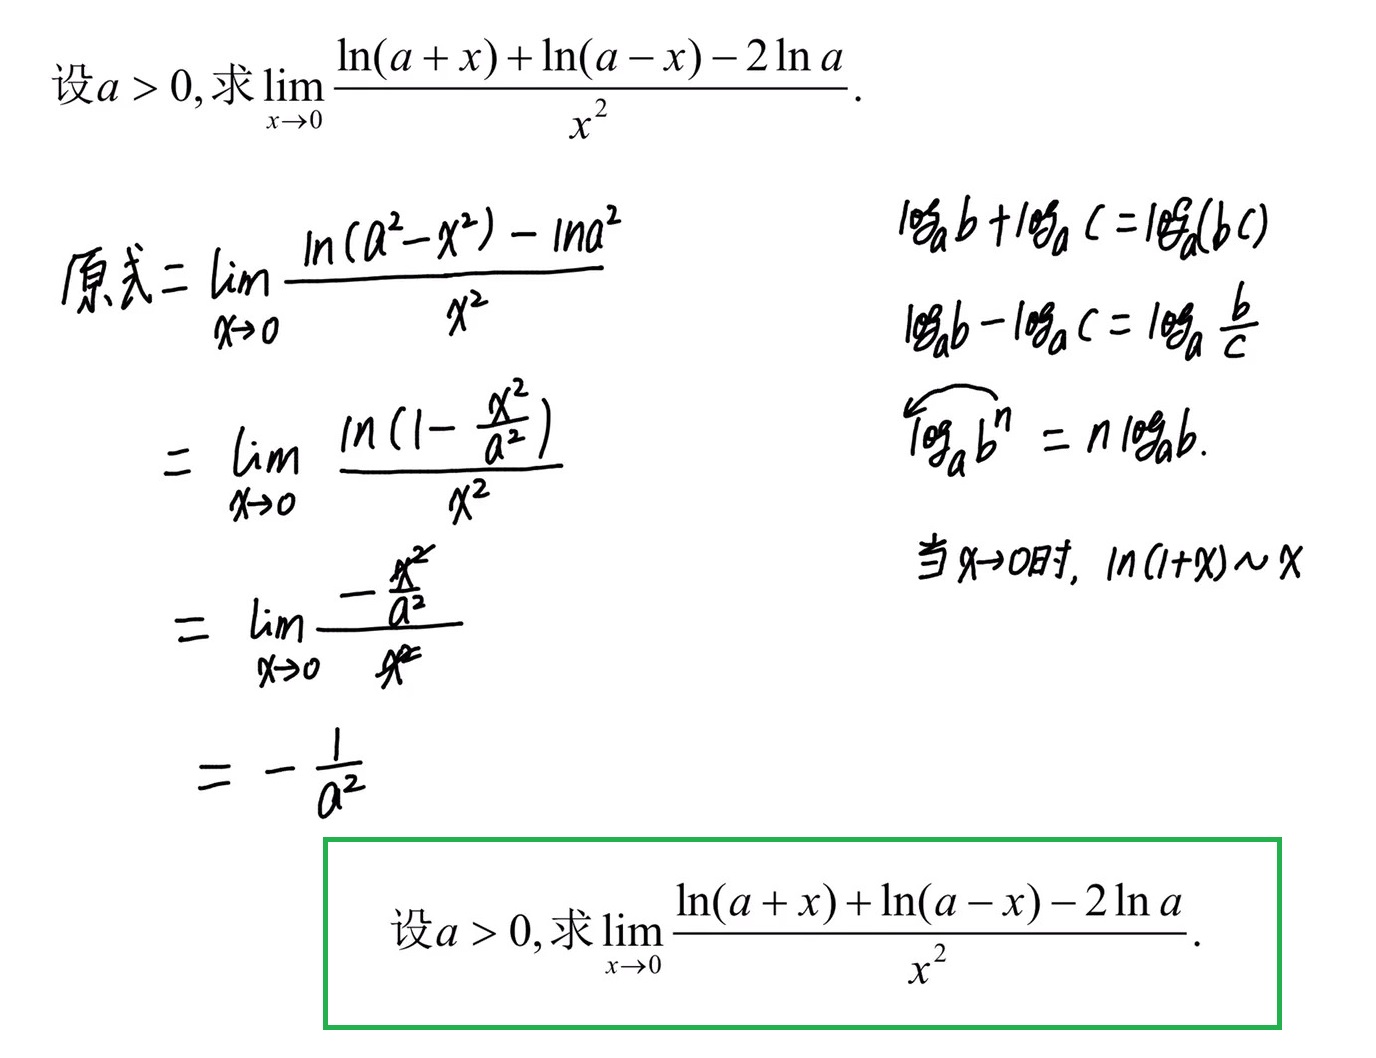 设a > 0, 求 lim_{x→0} \frac{ln(a + x) + ln(a − x) − 2 ln a}{x^2}.
原式 = lim_{x→0} \frac{ln(a^2−x^2) − lna^2}{x^2}
= lim_{x→0} \frac{ln(1− \frac{x^2}{a^2})}{x^2}
= lim_{x→0} \frac{−\frac{x^2}{a^2}}{x^2}
= − \frac{1}{a^2}
log_a b + log_a c = log_a(bc)
log_a b − log_a c = log_a \frac{b}{c}
log_a b^n = n log_a b.
当 x→0时, ln(1+x) ~ x
设a > 0, 求 lim_{x→0} \frac{ln(a + x) + ln(a − x) − 2 ln a}{x^2}.